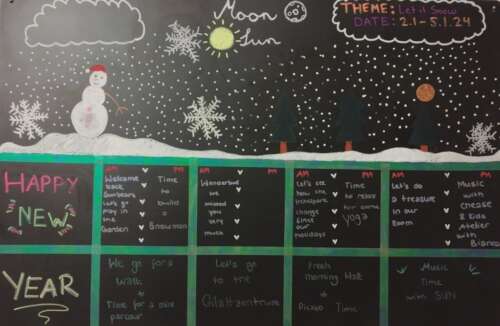 Moon
Sun
THEME: Let it Snow
DATE: 2.1 - 5.1.24
HAPPY
NEW
YEAR
AM PM
Welcome
back
Let's go
play in
the
Garden
Time
to
build
a
Snowman
AM PM
we
missed
you
very
much
AM PM
Let's see
how the
change
since
our
holidays
Time
to relax
for some
yoga
AM PM
Let's do
a treasure
in our
room
Music
with
& Kids
Atelier
with
Bianca
We go for a
Walk
+
Time for a mini
parcour
Let's go
to the
Glattzentrum
Fresh
morning Walk
+
Picasso Time
Music
Time
with SUN